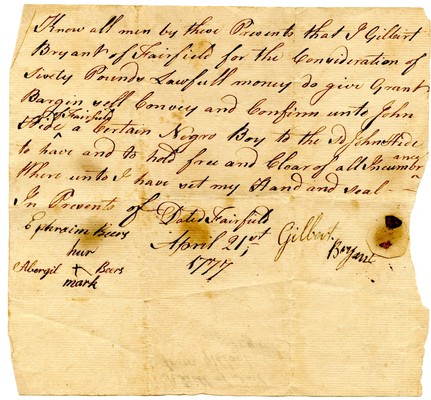 Know all men by these Presents that I Gilburt
Bryant of Fairfield for the Consideration of
Sixty Pounds Lawfull money do give Grant
Bargin sell Convey and Confirm unto John
of Fairfield
Hide ^ a Certain Negro Boy to the sd John Hide
to have and to hold free and Clear of all Incumbrance
Where unto I have set my Hand and seal
In Presents of
Dated Fairfield
April 21st
1777
Ephraim Beers
hur
Abergil + Beers
mark
Gilbert
Bryant